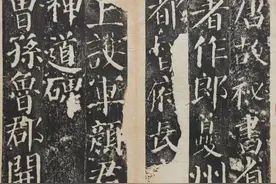 唐故秘書省
著作郎夔州
都督府長
上護軍顏君
神道碑
曾孫魯郡開